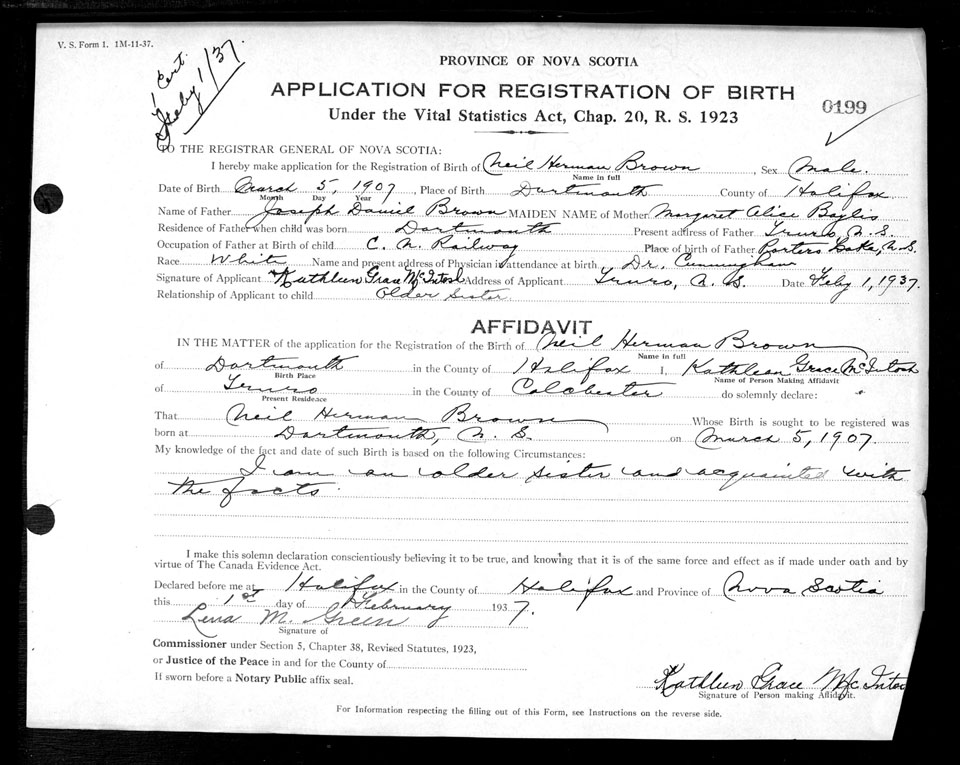 V. S. Form 1. 1M-11-37.
1 Cert.
Feby 1/37.
PROVINCE OF NOVA SCOTIA
APPLICATION FOR REGISTRATION OF BIRTH
0199
Under the Vital Statistics Act, Chap. 20, R. S. 1923
TO THE REGISTRAR GENERAL OF NOVA SCOTIA:
I hereby make application for the Registration of Birth of Neil Herman Brown, Sex Male.
Name in full
Date of Birth March 5, 1907, Place of Birth Dartmouth County of Halifax
Month Day Year
Name of Father Joseph Daniel Brown MAIDEN NAME of Mother Margaret Alice Baylis
Residence of Father when child was born Dartmouth Present address of Father Truro, N. S.
Occupation of Father at Birth of child C. N. Railway Place of birth of Father Porters Lake, N. S.
Race White Name and present address of Physician in attendance at birth Dr. Cunningham
Signature of Applicant Kathleen Grace McIntosh Address of Applicant Truro, N. S. Date Feby 1, 1937.
Relationship of Applicant to child Older Sister.
AFFIDAVIT
IN THE MATTER of the application for the Registration of the Birth of Neil Herman Brown
Name in full
of Dartmouth in the County of Halifax I, Kathleen Grace McIntosh
Birth Place Name of Person Making Affidavit
of Truro in the County of Colchester do solemnly declare:
Present Residence
That Neil Herman Brown Whose Birth is sought to be registered was
born at Dartmouth, N. S. on March 5, 1907.
My knowledge of the fact and date of such Birth is based on the following Circumstances:
I am an older sister and acquainted with
the facts.
I make this solemn declaration conscientiously believing it to be true, and knowing that it is of the same force and effect as if made under oath and by
virtue of The Canada Evidence Act.
Declared before me at Halifax in the County of Halifax and Province of Nova Scotia
this 1st day of February 1937.
Lena M. Green
Signature of
Commissioner under Section 5, Chapter 38, Revised Statutes, 1923,
or Justice of the Peace in and for the County of
If sworn before a Notary Public affix seal.
Kathleen Grace McIntosh
Signature of Person making Affidavit.
For Information respecting the filling out of this Form, see Instructions on the reverse side.